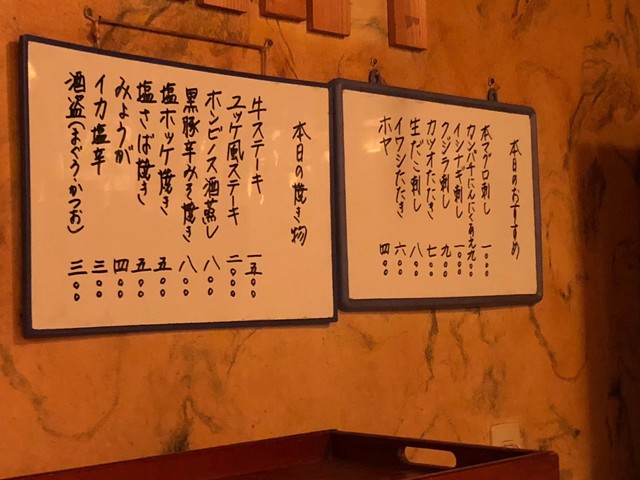 本日のおすすめ
本マグロ刺し 一〇〇〇
カンパチにんにくあえ 九〇〇
イシナギ刺し 一〇〇〇
クジラ刺し 九〇〇
カツオたたき 七〇〇
生だこ刺し 八〇〇
イワシたたき 六〇〇
ホヤ 四〇〇
本日の焼き物
牛ステーキ 一五〇〇
ユッケ風ステーキ 二〇〇〇
ホンビノス酒蒸し 八〇〇
黒豚辛みそ焼き 八〇〇
塩ホッケ焼き 五〇〇
塩さば焼き 五〇〇
みょうが 四〇〇
イカ塩辛 三〇〇
酒盗(まぐろ・かつお) 三〇〇